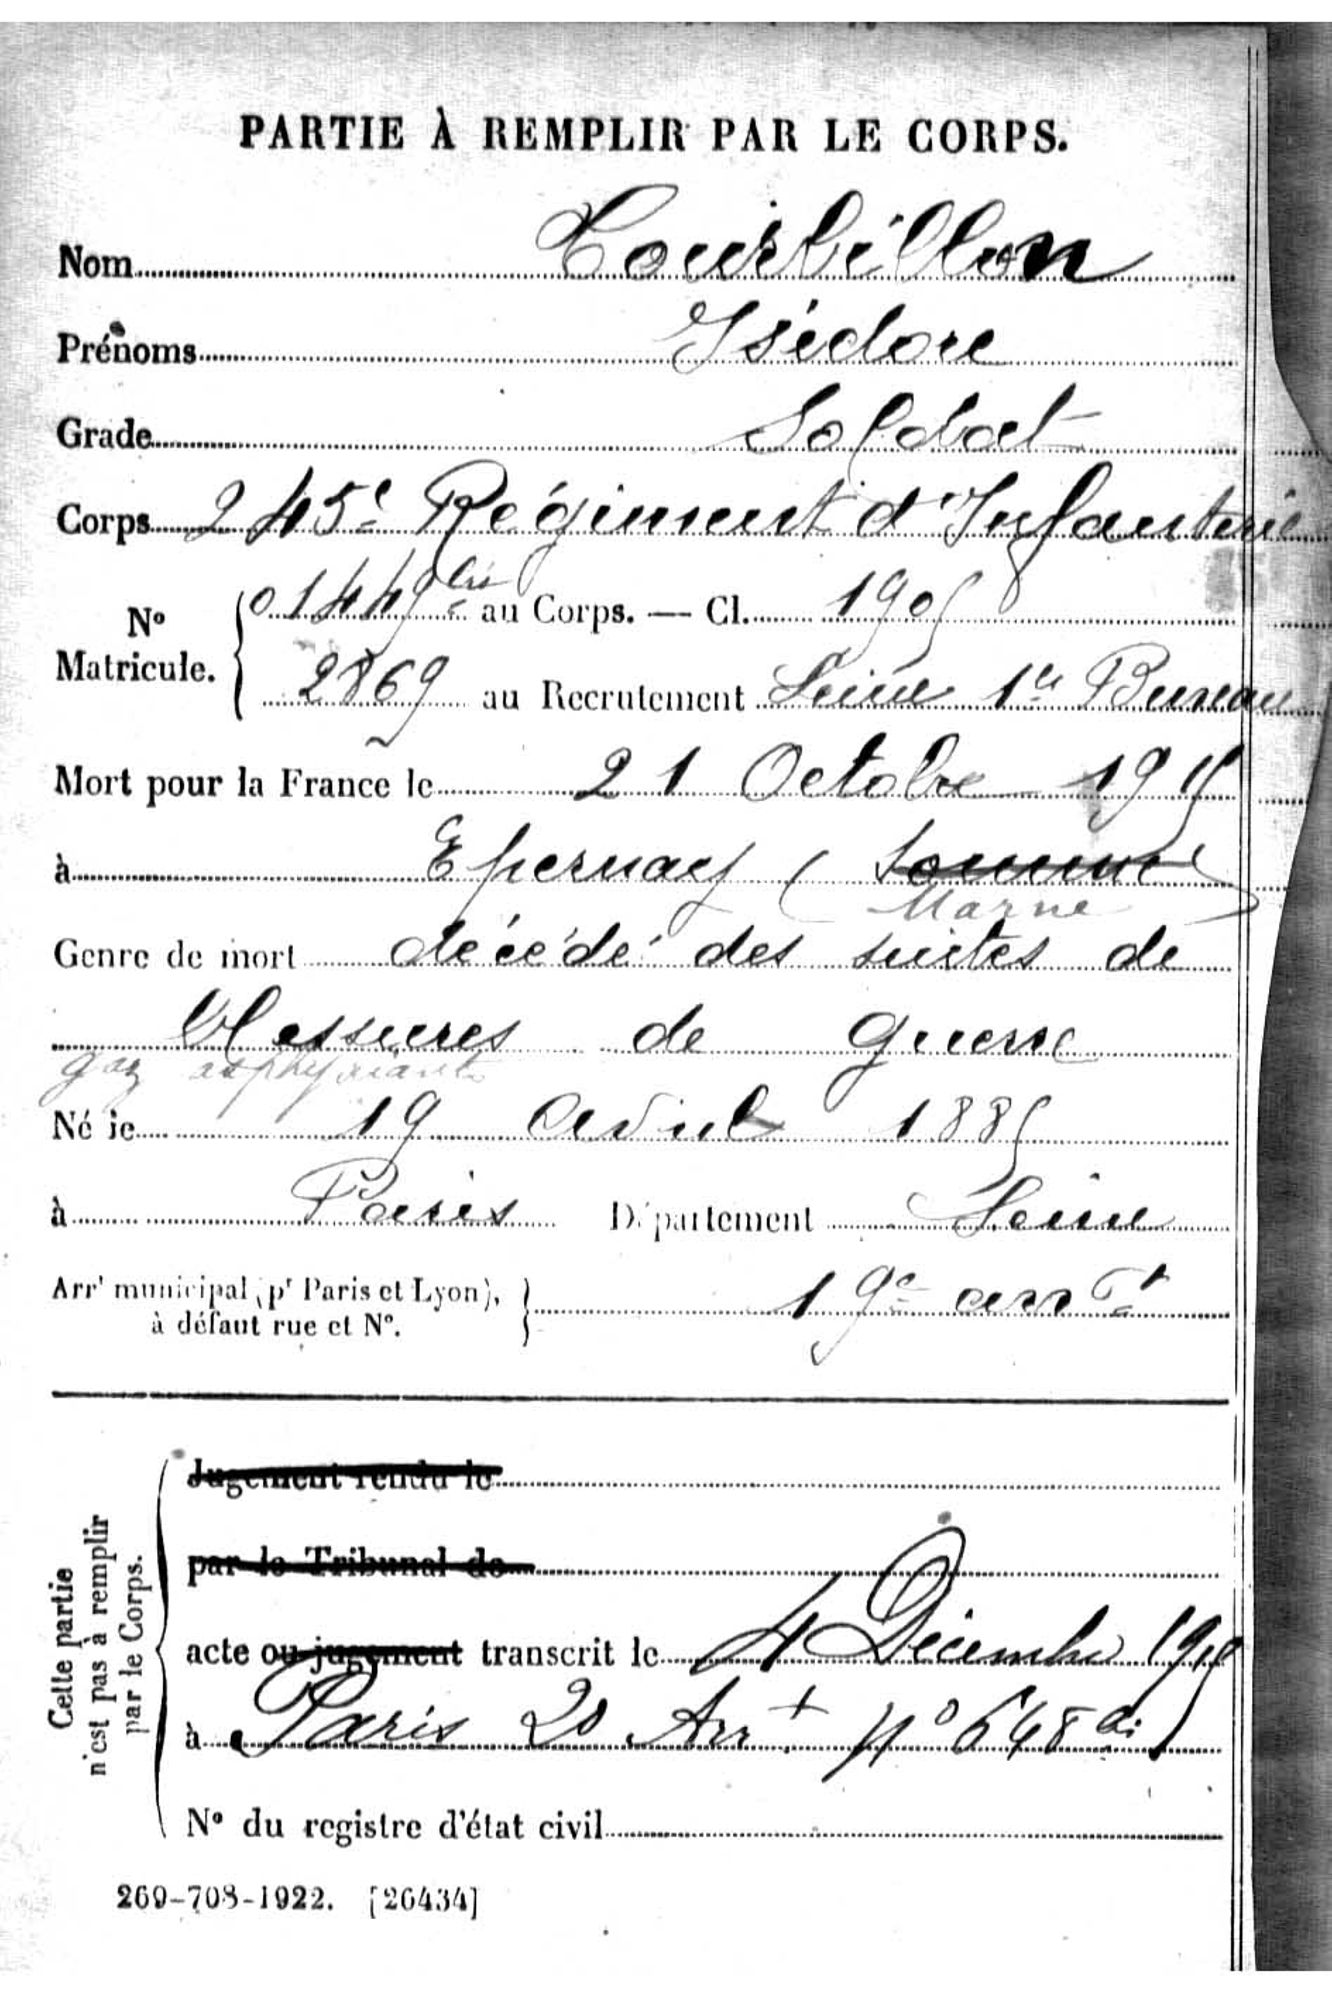 PARTIE À REMPLIR PAR LE CORPS.
Nom Tourbillon
Prénoms Isidore
Grade Soldat
Corps 245e Régiment d'Infanterie
No Matricule. 01449 bis au Corps. — Cl. 1905
2869 au Recrutement Seine 1er Bureau
Mort pour la France le 21 Octobre 1915
à Epernay (Somme)
Marne
Genre de mort décédé des suites de
Blessures de guerre
gaz asphyxiants
Né le 19 Avril 1885
à Paris Département Seine
Arrt municipal (pr Paris et Lyon), à défaut rue et No. 19e arrt
Cette partie n'est pas à remplir par le Corps.
Jugement rendu le
par le Tribunal de
acte ou jugement transcrit le 4 Décembre 1915
à Paris 20 Arrt No 648
No du registre d'état civil
269-708-1922. [26434]